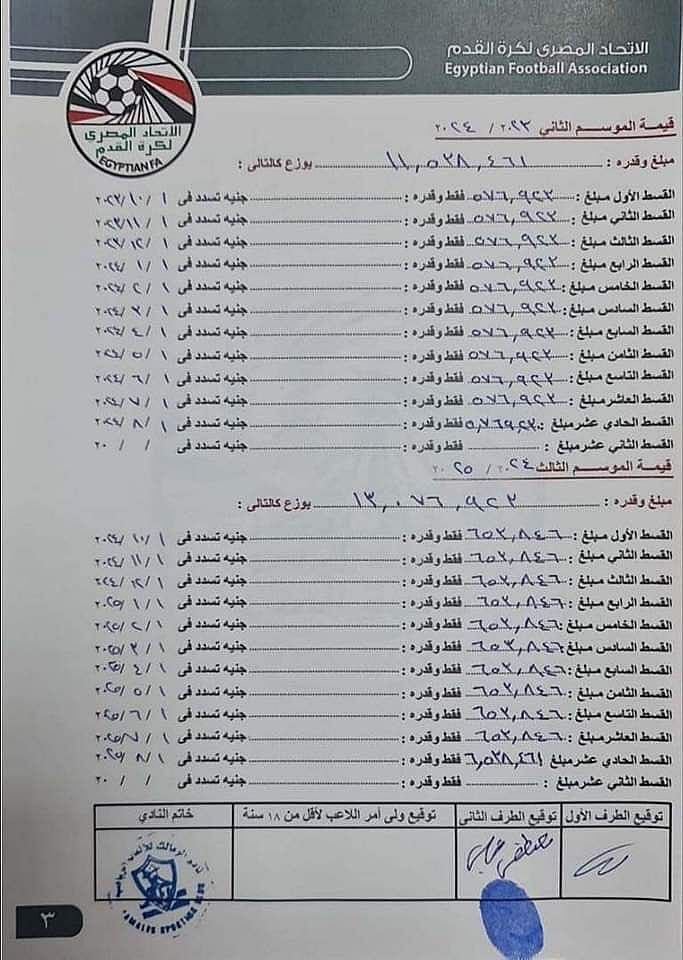 الاتحاد المصرى لكرة القدم
Egyptian Football Association
الاتحاد المصرى
لكرة القدم
EGYPTIAN FA
قيمة الموسم الثاني ٢٠٢٣ / ٢٠٢٤
مبلغ وقدره : ١١,٥٣٨,٤٦١ يوزع كالتالى :
القسط الأول مبلغ : ٥٧٦,٩٢٣ فقط وقدره : جنيه تسدد فى ١ / ١٠ / ٢٠٢٣
القسط الثاني مبلغ : ٥٧٦,٩٢٣ فقط وقدره : جنيه تسدد فى ١ / ١١ / ٢٠٢٣
القسط الثالث مبلغ : ٥٧٦,٩٢٣ فقط وقدره : جنيه تسدد فى ١ / ١٢ / ٢٠٢٣
القسط الرابع مبلغ : ٥٧٦,٩٢٣ فقط وقدره : جنيه تسدد فى ١ / ١ / ٢٠٢٤
القسط الخامس مبلغ : ٥٧٦,٩٢٣ فقط وقدره : جنيه تسدد فى ١ / ٢ / ٢٠٢٤
القسط السادس مبلغ : ٥٧٦,٩٢٣ فقط وقدره : جنيه تسدد فى ١ / ٣ / ٢٠٢٤
القسط السابع مبلغ : ٥٧٦,٩٢٣ فقط وقدره : جنيه تسدد فى ١ / ٤ / ٢٠٢٤
القسط الثامن مبلغ : ٥٧٦,٩٢٣ فقط وقدره : جنيه تسدد فى ١ / ٥ / ٢٠٢٤
القسط التاسع مبلغ : ٥٧٦,٩٢٣ فقط وقدره : جنيه تسدد فى ١ / ٦ / ٢٠٢٤
القسط العاشر مبلغ : ٥٧٦,٩٢٣ فقط وقدره : جنيه تسدد فى ١ / ٧ / ٢٠٢٤
القسط الحادي عشر مبلغ : ٥,٧٦٩,٢٣٠ فقط وقدره : جنيه تسدد فى ١ / ٨ / ٢٠٢٤
القسط الثاني عشر مبلغ : فقط وقدره : جنيه تسدد فى / / ٢٠
قيمة الموسم الثالث ٢٠٢٤ / ٢٠٢٥
مبلغ وقدره : ١٣,٠٧٦,٩٢٣ يوزع كالتالى :
القسط الأول مبلغ : ٦٥٣,٨٤٦ فقط وقدره : جنيه تسدد فى ١ / ١٠ / ٢٠٢٤
القسط الثاني مبلغ : ٦٥٣,٨٤٦ فقط وقدره : جنيه تسدد فى ١ / ١١ / ٢٠٢٤
القسط الثالث مبلغ : ٦٥٣,٨٤٦ فقط وقدره : جنيه تسدد فى ١ / ١٢ / ٢٠٢٤
القسط الرابع مبلغ : ٦٥٣,٨٤٦ فقط وقدره : جنيه تسدد فى ١ / ١ / ٢٠٢٥
القسط الخامس مبلغ : ٦٥٣,٨٤٦ فقط وقدره : جنيه تسدد فى ١ / ٢ / ٢٠٢٥
القسط السادس مبلغ : ٦٥٣,٨٤٦ فقط وقدره : جنيه تسدد فى ١ / ٣ / ٢٠٢٥
القسط السابع مبلغ : ٦٥٣,٨٤٦ فقط وقدره : جنيه تسدد فى ١ / ٤ / ٢٠٢٥
القسط الثامن مبلغ : ٦٥٣,٨٤٦ فقط وقدره : جنيه تسدد فى ١ / ٥ / ٢٠٢٥
القسط التاسع مبلغ : ٦٥٣,٨٤٦ فقط وقدره : جنيه تسدد فى ١ / ٦ / ٢٠٢٥
القسط العاشر مبلغ : ٦٥٣,٨٤٦ فقط وقدره : جنيه تسدد فى ١ / ٧ / ٢٠٢٥
القسط الحادي عشر مبلغ ٦,٥٣٨,٤٦١ فقط وقدره : جنيه تسدد فى ١ / ٨ / ٢٠٢٥
القسط الثاني عشر مبلغ : فقط وقدره : جنيه تسدد فى / / ٢٠
توقيع الطرف الأول توقيع الطرف الثانى توقيع ولى أمر اللاعب لأقل من ١٨ سنة خاتم النادي
نادي الزمالك للألعاب الرياضية
ZAMALEK SPORTING CLUB
٣